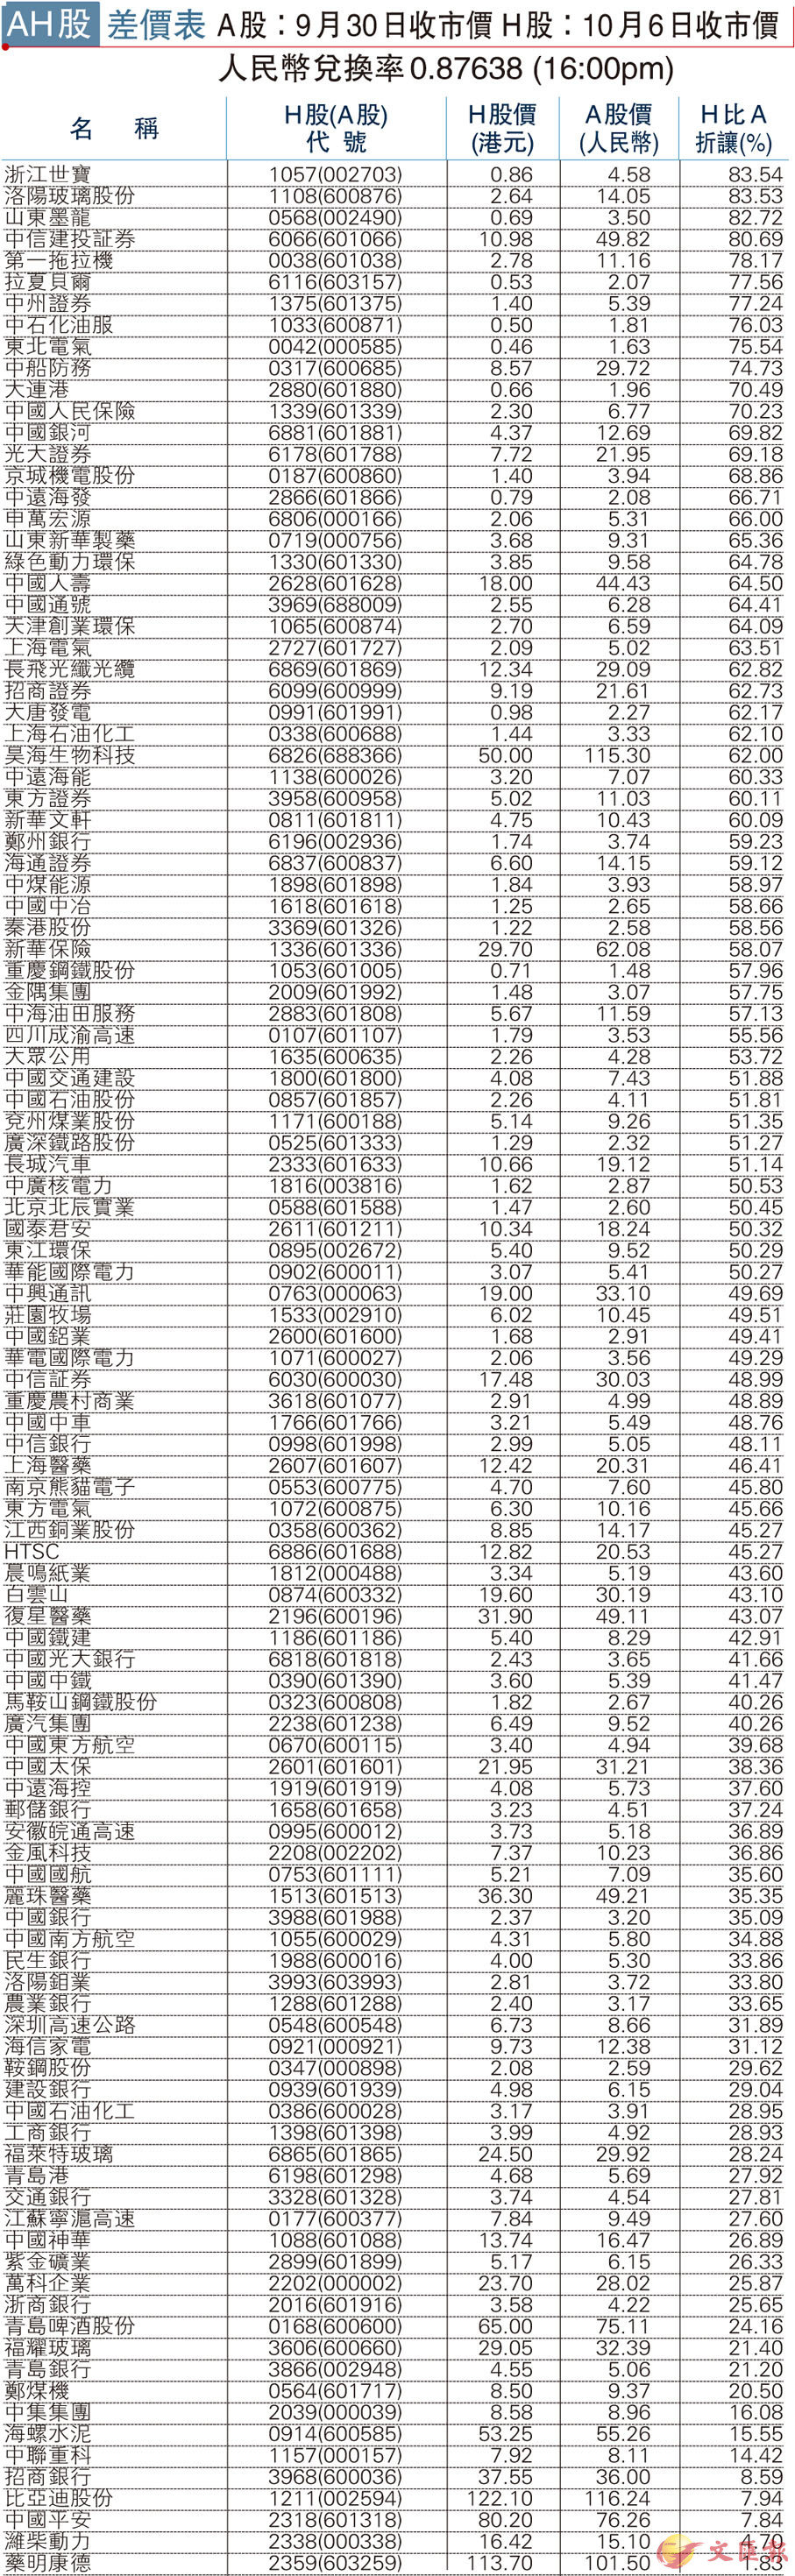 AH股 差價表 A股：9月30日收市價 H股：10月6日收市價
人民幣兌換率0.87638 (16:00pm)
名 稱 H股(A股)代 號 H股價(港元) A股價(人民幣) H比A折讓(%)
浙江世寶 1057(002703) 0.86 4.58 83.54
洛陽玻璃股份 1108(600876) 2.64 14.05 83.53
山東墨龍 0568(002490) 0.69 3.50 82.72
中信建投証券 6066(601066) 10.98 49.82 80.69
第一拖拉機 0038(601038) 2.78 11.16 78.17
拉夏貝爾 6116(603157) 0.53 2.07 77.56
中州證券 1375(601375) 1.40 5.39 77.24
中石化油服 1033(600871) 0.50 1.81 76.03
東北電氣 0042(000585) 0.46 1.63 75.54
中船防務 0317(600685) 8.57 29.72 74.73
大連港 2880(601880) 0.66 1.96 70.49
中國人民保險 1339(601339) 2.30 6.77 70.23
中國銀河 6881(601881) 4.37 12.69 69.82
光大證券 6178(601788) 7.72 21.95 69.18
京城機電股份 0187(600860) 1.40 3.94 68.86
中遠海發 2866(601866) 0.79 2.08 66.71
申萬宏源 6806(000166) 2.06 5.31 66.00
山東新華製藥 0719(000756) 3.68 9.31 65.36
綠色動力環保 1330(601330) 3.85 9.58 64.78
中國人壽 2628(601628) 18.00 44.43 64.50
中國通號 3969(688009) 2.55 6.28 64.41
天津創業環保 1065(600874) 2.70 6.59 64.09
上海電氣 2727(601727) 2.09 5.02 63.51
長飛光纖光纜 6869(601869) 12.34 29.09 62.82
招商證券 6099(600999) 9.19 21.61 62.73
大唐發電 0991(601991) 0.98 2.27 62.17
上海石油化工 0338(600688) 1.44 3.33 62.10
昊海生物科技 6826(688366) 50.00 115.30 62.00
中遠海能 1138(600026) 3.20 7.07 60.33
東方證券 3958(600958) 5.02 11.03 60.11
新華文軒 0811(601811) 4.75 10.43 60.09
鄭州銀行 6196(002936) 1.74 3.74 59.23
海通證券 6837(600837) 6.60 14.15 59.12
中煤能源 1898(601898) 1.84 3.93 58.97
中國中冶 1618(601618) 1.25 2.65 58.66
秦港股份 3369(601326) 1.22 2.58 58.56
新華保險 1336(601336) 29.70 62.08 58.07
重慶鋼鐵股份 1053(601005) 0.71 1.48 57.96
金隅集團 2009(601992) 1.48 3.07 57.75
中海油田服務 2883(601808) 5.67 11.59 57.13
四川成渝高速 0107(601107) 1.79 3.53 55.56
大眾公用 1635(600635) 2.26 4.28 53.72
中國交通建設 1800(601800) 4.08 7.43 51.88
中國石油股份 0857(601857) 2.26 4.11 51.81
兗州煤業股份 1171(600188) 5.14 9.26 51.35
廣深鐵路股份 0525(601333) 1.29 2.32 51.27
長城汽車 2333(601633) 10.66 19.12 51.14
中廣核電力 1816(003816) 1.62 2.87 50.53
北京北辰實業 0588(601588) 1.47 2.60 50.45
國泰君安 2611(601211) 10.34 18.24 50.32
東江環保 0895(002672) 5.40 9.52 50.29
華能國際電力 0902(600011) 3.07 5.41 50.27
中興通訊 0763(000063) 19.00 33.10 49.69
莊園牧場 1533(002910) 6.02 10.45 49.51
中國鋁業 2600(601600) 1.68 2.91 49.41
華電國際電力 1071(600027) 2.06 3.56 49.29
中信証券 6030(600030) 17.48 30.03 48.99
重慶農村商業 3618(601077) 2.91 4.99 48.89
中國中車 1766(601766) 3.21 5.49 48.76
中信銀行 0998(601998) 2.99 5.05 48.11
上海醫藥 2607(601607) 12.42 20.31 46.41
南京熊貓電子 0553(600775) 4.70 7.60 45.80
東方電氣 1072(600875) 6.30 10.16 45.66
江西銅業股份 0358(600362) 8.85 14.17 45.27
HTSC 6886(601688) 12.82 20.53 45.27
晨鳴紙業 1812(000488) 3.34 5.19 43.60
白雲山 0874(600332) 19.60 30.19 43.10
復星醫藥 2196(600196) 31.90 49.11 43.07
中國鐵建 1186(601186) 5.40 8.29 42.91
中國光大銀行 6818(601818) 2.43 3.65 41.66
中國中鐵 0390(601390) 3.60 5.39 41.47
馬鞍山鋼鐵股份 0323(600808) 1.82 2.67 40.26
廣汽集團 2238(601238) 6.49 9.52 40.26
中國東方航空 0670(600115) 3.40 4.94 39.68
中國太保 2601(601601) 21.95 31.21 38.36
中遠海控 1919(601919) 4.08 5.73 37.60
郵儲銀行 1658(601658) 3.23 4.51 37.24
安徽皖通高速 0995(600012) 3.73 5.18 36.89
金風科技 2208(002202) 7.37 10.23 36.86
中國國航 0753(601111) 5.21 7.09 35.60
麗珠醫藥 1513(601513) 36.30 49.21 35.35
中國銀行 3988(601988) 2.37 3.20 35.09
中國南方航空 1055(600029) 4.31 5.80 34.88
民生銀行 1988(600016) 4.00 5.30 33.86
洛陽鉬業 3993(603993) 2.81 3.72 33.80
農業銀行 1288(601288) 2.40 3.17 33.65
深圳高速公路 0548(600548) 6.73 8.66 31.89
海信家電 0921(000921) 9.73 12.38 31.12
鞍鋼股份 0347(000898) 2.08 2.59 29.62
建設銀行 0939(601939) 4.98 6.15 29.04
中國石油化工 0386(600028) 3.17 3.91 28.95
工商銀行 1398(601398) 3.99 4.92 28.93
福萊特玻璃 6865(601865) 24.50 29.92 28.24
青島港 6198(601298) 4.68 5.69 27.92
交通銀行 3328(601328) 3.74 4.54 27.81
江蘇寧滬高速 0177(600377) 7.84 9.49 27.60
中國神華 1088(601088) 13.74 16.47 26.89
紫金礦業 2899(601899) 5.17 6.15 26.33
萬科企業 2202(000002) 23.70 28.02 25.87
浙商銀行 2016(601916) 3.58 4.22 25.65
青島啤酒股份 0168(600600) 65.00 75.11 24.16
福耀玻璃 3606(600660) 29.05 32.39 21.40
青島銀行 3866(002948) 4.55 5.06 21.20
鄭煤機 0564(601717) 8.50 9.37 20.50
中集集團 2039(000039) 8.58 8.96 16.08
海螺水泥 0914(600585) 53.25 55.26 15.55
中聯重科 1157(000157) 7.92 8.11 14.42
招商銀行 3968(600036) 37.55 36.00 8.59
比亞迪股份 1211(002594) 122.10 116.24 7.94
中國平安 2318(601318) 80.20 76.26 7.84
濰柴動力 2338(000338) 16.42 15.10 4.70
藥明康德 2359(603259) 113.70 101.50 1.83
文匯報